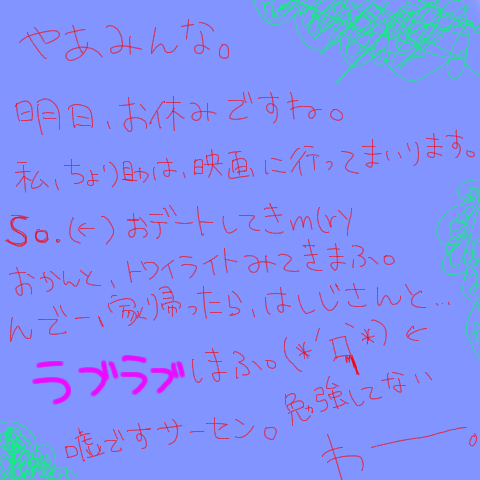 やあみんな。
明日、お休みですね。
私、ちょり助は、映画に行ってまいります。
So.(←)おデートしてきm(ry
おかんと、トワイライトみてきまふ。
んでー、家帰ったら、はしじさんと…
ラブラブしまふ。(*´Д`*)←
勉強してない
嘘ですサーセン。
わー。